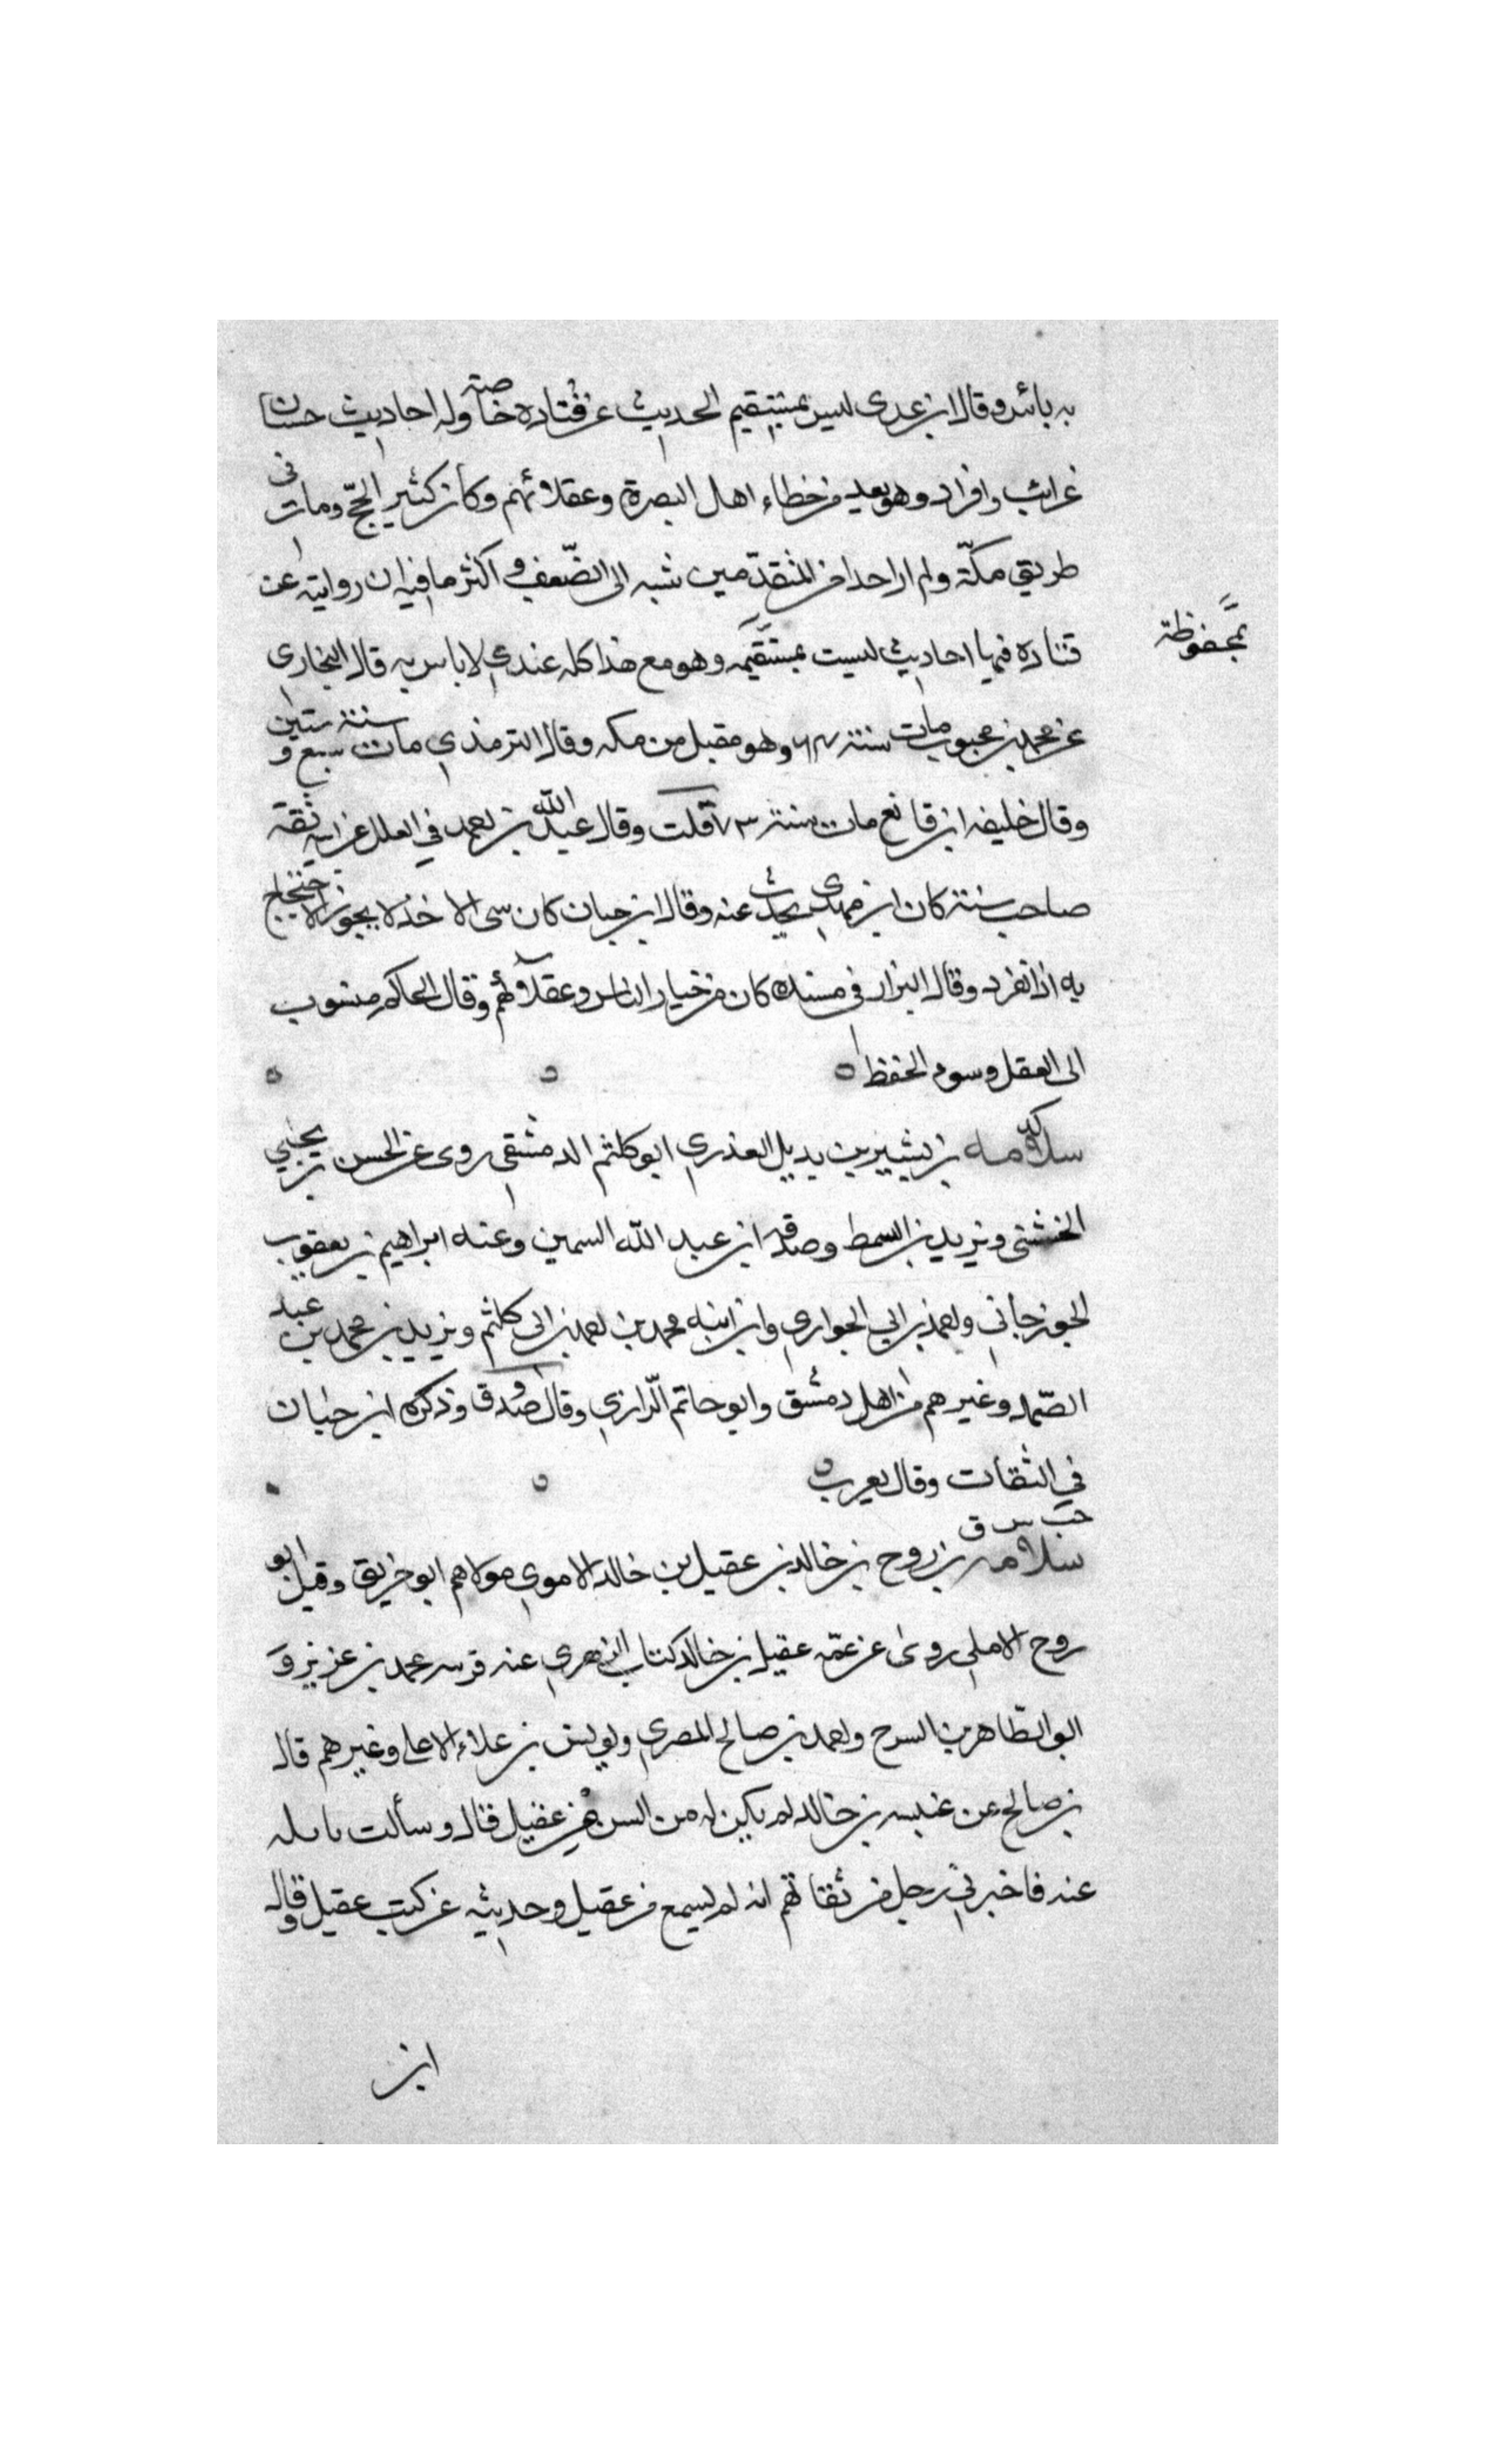 به بائس وقال ابن عدى ليس بمستقيم الحديث عن قتاده خاصة وله احاديث حسان
غرائب وافراد وهو يعد من خطاء اهل البصرة وعقلائهم وكان كثير الحجّ ومات فى
طريق مكّة ولم ار احدا من المتقدّمين نسبه الى الضّعف و اكثر ما فيه ان روايته عن
قتاده فيها احاديث ليست بمستقيمه وهو مع هذا كله عندي لا باس به قال البخارى
بمحفوظة
عن محمد بن محبوب مات سنة ٦٤ وهو مقبل من مكه وقال الترمذي مات سنة سبع و ستين
وقال خليفه ابن قانع مات سنة ٧٣ قلت وقال عبد الله بن احمد في العلل عن ابيه ثقة
صاحب سنة كان ابن مهدى يحدث عنه وقال ابن حبان كان سى الاخذ لا يجوز الاحتجاج
به اذا انفرد وقال البزار فى مسنده كان من خيار الناس وعقلائهم وقال الحاكم منسوب
الى العقل وسوء الحفظ
سلامه بن بشير بن بديل العذري ابو كلثم الدمشقي روى عن الحسن بن يحيي
الخشنى ويزيد بن السمط وصدقه ابن عبد الله السمين وعنه ابراهيم بن يعقوب
الجوزجاني واحمد بن ابي الحواري وابن ابنه محمد بن احمد بن ابى كلثم ويزيد بن محمد بن عبد
الصّمد وغيرهم من اهل دمشق وابو حاتم الّرازي وقال صدوق وذكره ابن حبان
في الثقات وقال يعرب
خت س ق
سلامه بن روح بن خالد بن عقيل بن خالد الاموي مولاهم ابو خربق وقيل ابو
روح الاملي روى عن عمّه عقيل بن خالد كتاب الزهري عنه محمد بن عزيز و
ابو الطّاهر بن السرح واحمد بن صالح المصري ويونس بن علاء الاعلى وغيرهم قال
بن صالح عن عنبسه بن خالد لم يكن له من السن عقيل قال و سألت بايله
عنه فاخبرني رجل من ثقاتهم انه لم يسمع من عقيل وحديثه عن كتب عقيل وقال
ابن